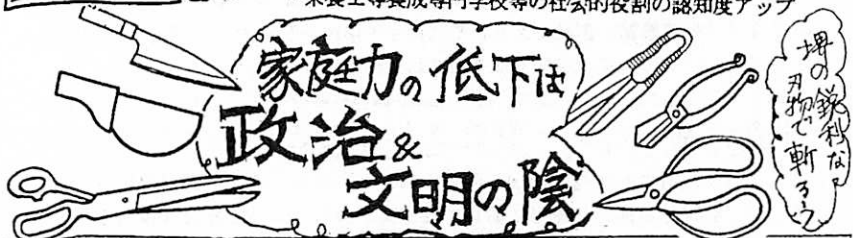 栄養士等養成専門学校等の社会的役割の認知度アップ
家庭力の低下は
政治&
文明の陰
堺の鋭利な
刃物で斬るう